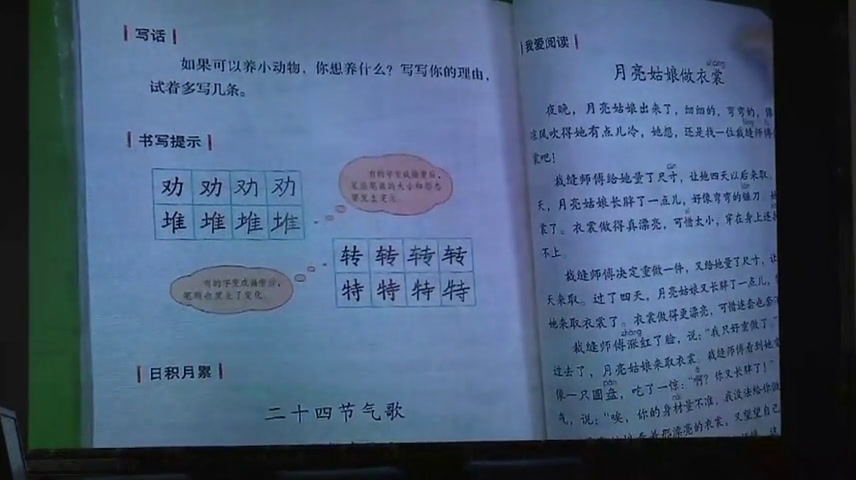 写话
如果可以养小动物，你想养什么？写写你的理由，
试着多写几条。
书写提示
劝 劝 劝 劝
堆 堆 堆 堆
有的字变成偏旁后，
笔画的大小和形态
要发生变化。
转 转 转 转
特 特 特 特
有的字变成偏旁后，
笔顺也发生了变化。
日积月累
二十四节气歌
我爱阅读
shang
月亮姑娘做衣裳
夜晚，月亮姑娘出来了，细细的，弯弯的，像
凉风吹得她有点儿冷，她想，还是找一位裁缝师傅
裳吧！
裁缝师傅给她量了尺寸，让她四天以后来取。
天，月亮姑娘长胖了一点儿，好像弯弯的镰刀。
裳了。衣裳做得真漂亮，可惜太小，穿在身上连
不上。
裁缝师傅决定重做一件，又给她量了尺寸，让
天来取。过了四天，月亮姑娘又长胖了一点儿，
她来取衣裳了。衣裳做得更漂亮，可惜连套也套
zhàng
裁缝师傅涨红了脸，说：“我只好重做了。”
过去了，月亮姑娘来取衣裳。裁缝师傅看到她
pán
像一只圆盘，吃了一惊：“啊？你又长胖了！”
气，说：“唉，你的身材量不准，我没法给你做